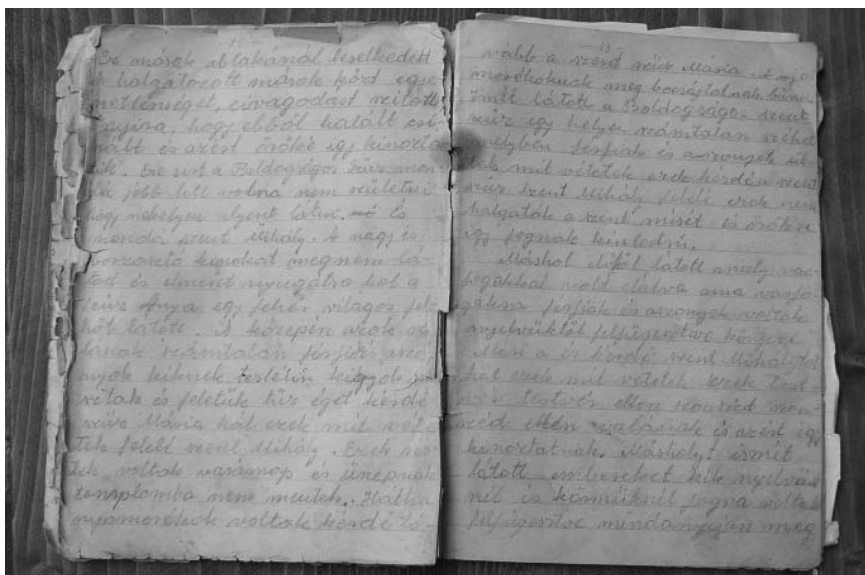 Ez mások ablakánál leselkedett
és halgatozott mások közt egye
netlenséget, civagodást szitott
anyira, hogy ebből halált csi
nált és azért öröké így kinozta
tik. Ere ezt a Boldogságos szűz mon
dá jobb lett volna nem születni
hogy nehelyen ilyent látni. És
mondá szent Mihály. A nagy és
borzasztó kinokat megnem lá-
tod és elment nyugatra hol a
Szűz Anya egy fehér világos fel
hőt látott. A közepén azok
számtalan férfi és aszo
nyok kiknek testétin kigyok
és feletük tűz égett kérdé
szűz Mária hát ezek mit véte
tek felelé szent Mihály. Ezek
voltak vasárnap és ünepnak
templomba nem mentek. Hátha
nyomorékok voltak kérdé to-
13
vább a szent szűz Mária. A nyo
morékoknak meg bocsájtatnak bűnei
Ismét látott a Boldogságos szent
szűz egy helyen számtalan széket
melyben férfiak és asszonyok ül
tek mit vétetek ezek kérdé a szent
szűz szent Mihály felelé ezek nem
halgaták a szent misét és öröke
így fognak kinlodni.
Máshol látott amely vas
fogakkal volt elátva ama vasfo
gakra férfiak és aszonyok voltak
nyelvüktől felfügesztve
kérdé szent Mihálytol
hát ezek mit vétetek ezek test
vér testvér ellen szomszéd szom
széd ellen és azért így
kinoztatnak. Másholyt ismét
látott embereket kik nyelvük
nél és körmüknél fogva voltak
felfügesztve mindanyian meg